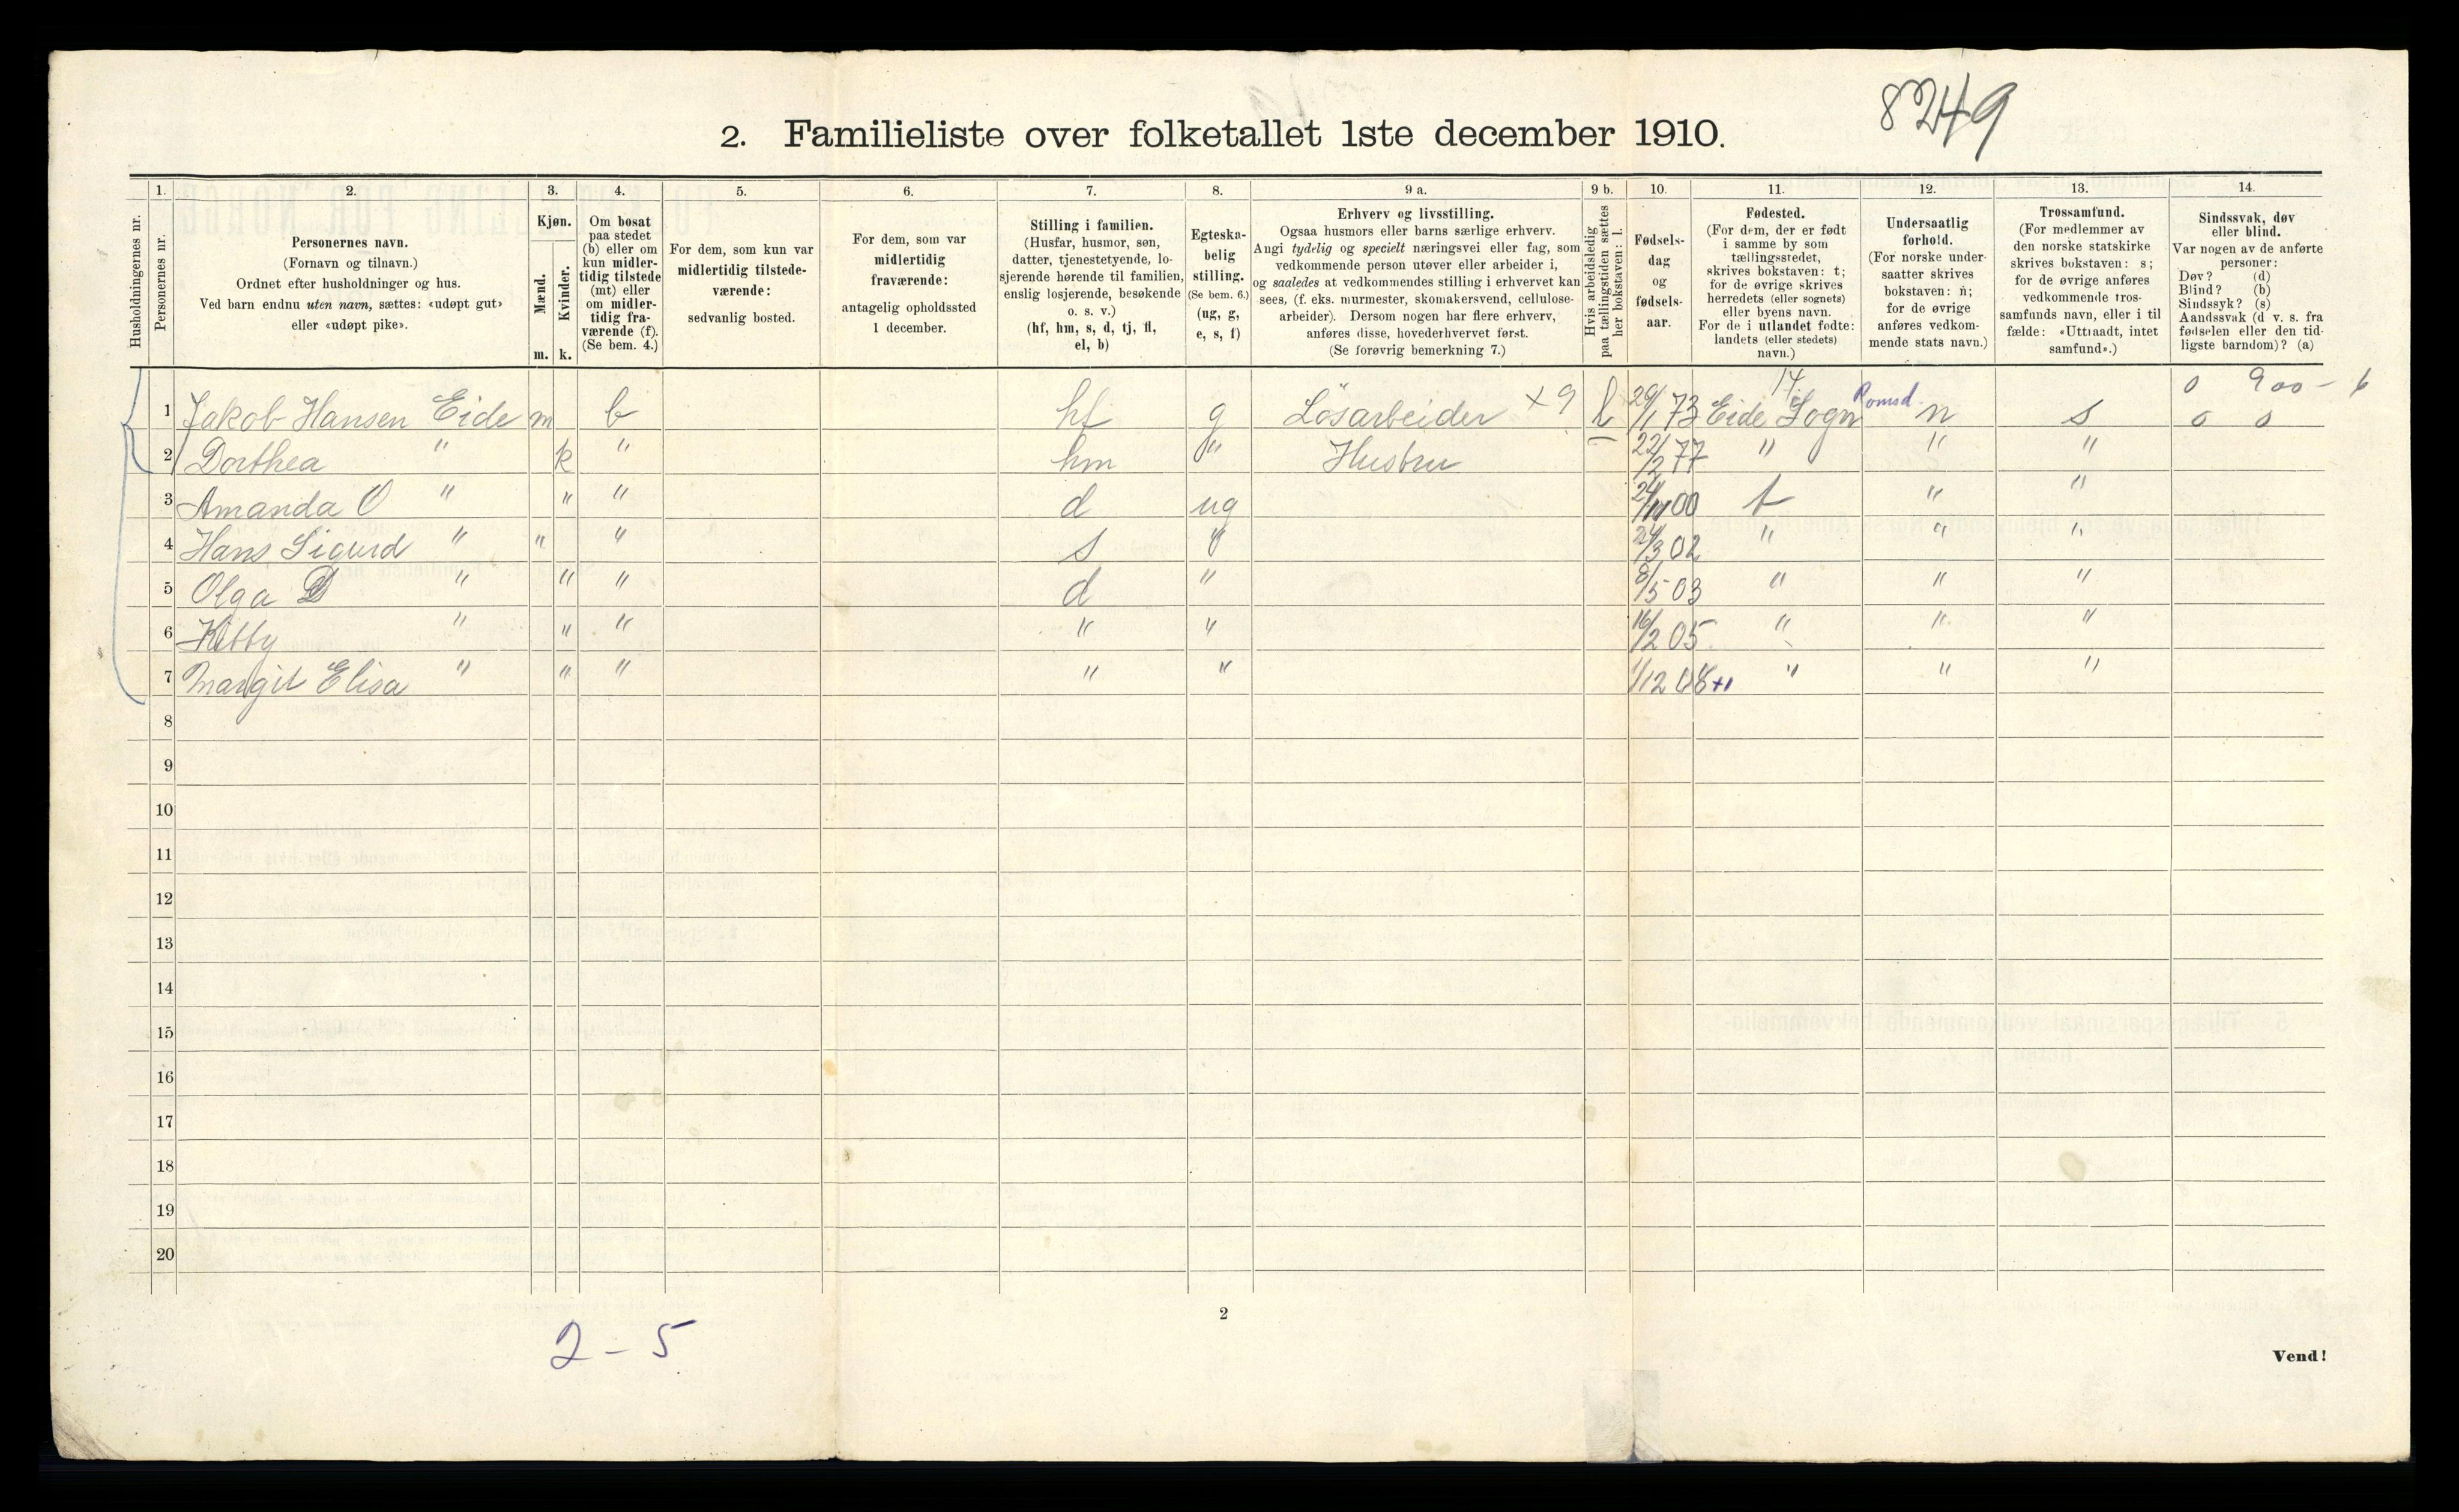 8249
2. Familieliste over folketallet 1ste december 1910.
1. 2. 3. 4. 5. 6. 7. 8. 9 a. 9 b. 10. 11. 12. 13. 14.
Husholdningernes nr.
Personernes nr.
Personernes navn.
(Fornavn og tilnavn.)
Ordnet efter husholdninger og hus.
Ved barn endnu uten navn, sættes: «udøpt gut»
eller «udøpt pike».
Kjøn.
Mænd.
Kvinder.
m. k.
Om bosat
paa stedet
(b) eller om
kun midler-
tidig tilstede
(mt) eller
om midler-
tidig fra-
værende (f).
(Se bem. 4.)
For dem, som kun var
midlertidig tilstede-
værende:
sedvanlig bosted.
For dem, som var
midlertidig
fraværende:
antagelig opholdssted
1 december.
Stilling i familien.
(Husfar, husmor, søn,
datter, tjenestetyende, lo-
sjerende hørende til familien,
enslig losjerende, besøkende
o. s. v.)
(hf, hm, s, d, tj, fl,
el, b)
Egteska-
belig
stilling.
(Se bem. 6.)
(ug, g,
e, s, f)
Erhverv og livsstilling.
Ogsaa husmors eller barns særlige erhverv.
Angi tydelig og specielt næringsvei eller fag, som
vedkommende person utøver eller arbeider i,
og saaledes at vedkommendes stilling i erhvervet kan
sees, (f. eks. murmester, skomakersvend, cellulose-
arbeider). Dersom nogen har flere erhverv,
anføres disse, hovederhvervet først.
(Se forøvrig bemerkning 7.)
Hvis arbeidsledig
paa tællingstiden sættes
her bokstaven: l.
Fødsels-
dag
og
fødsels-
aar.
Fødested.
(For dem, der er født
i samme by som
tællingsstedet,
skrives bokstaven: t;
for de øvrige skrives
herredets (eller sognets)
eller byens navn.
For de i utlandet fødte:
landets (eller stedets)
navn.)
Undersaatlig
forhold.
(For norske under-
saatter skrives
bokstaven: n;
for de øvrige
anføres vedkom-
mende stats navn.)
Trossamfund.
(For medlemmer av
den norske statskirke
skrives bokstaven: s;
for de øvrige anføres
vedkommende tros-
samfunds navn, eller i til
fælde: «Uttraadt, intet
samfund».)
Sindssvak, døv
eller blind.
Var nogen av de anførte
personer:
Døv? (d)
Blind? (b)
Sindssyk? (s)
Aandssvak (d v. s. fra
fødselen eller den tid-
ligste barndom)? (a)
0 900 - 6
1 Jakob Hansen Eide m b hf g Lösarbeider × 9 l 29/1 73 Eide Sogn Romsd. n s 0 0
2 Dorthea " k " hm " Hustru 22/2 77 " " "
3 Amanda O " " " d ug 24/11 00 t " "
4 Hans Sigurd " " " s " 24/3 02 " " "
5 Olga D " " " d " 8/5 03 " " "
6 Kitty " " " " " 16/2 05 " " "
7 Margit Elisa " " " " " 1/12 08 +1 " " "
8
9
10
11
12
13
14
15
16
17
18
19
20
2
2 - 5
Vend!